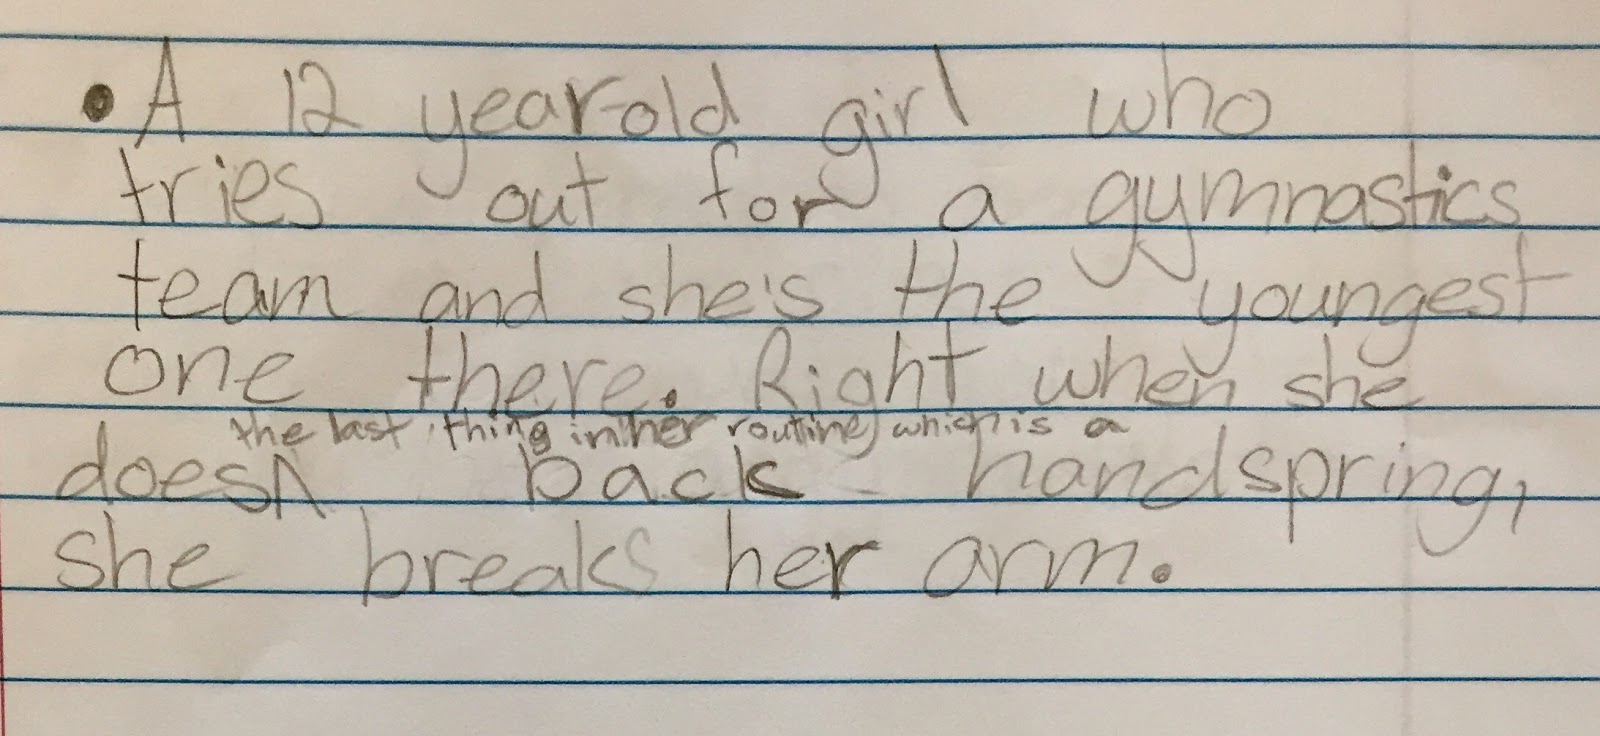 • A 12 year-old girl who
tries out for a gymnastics
team and she's the youngest
one there. Right when she
the last thing in her routine, which is a
does^ back-handspring,
she breaks her arm.